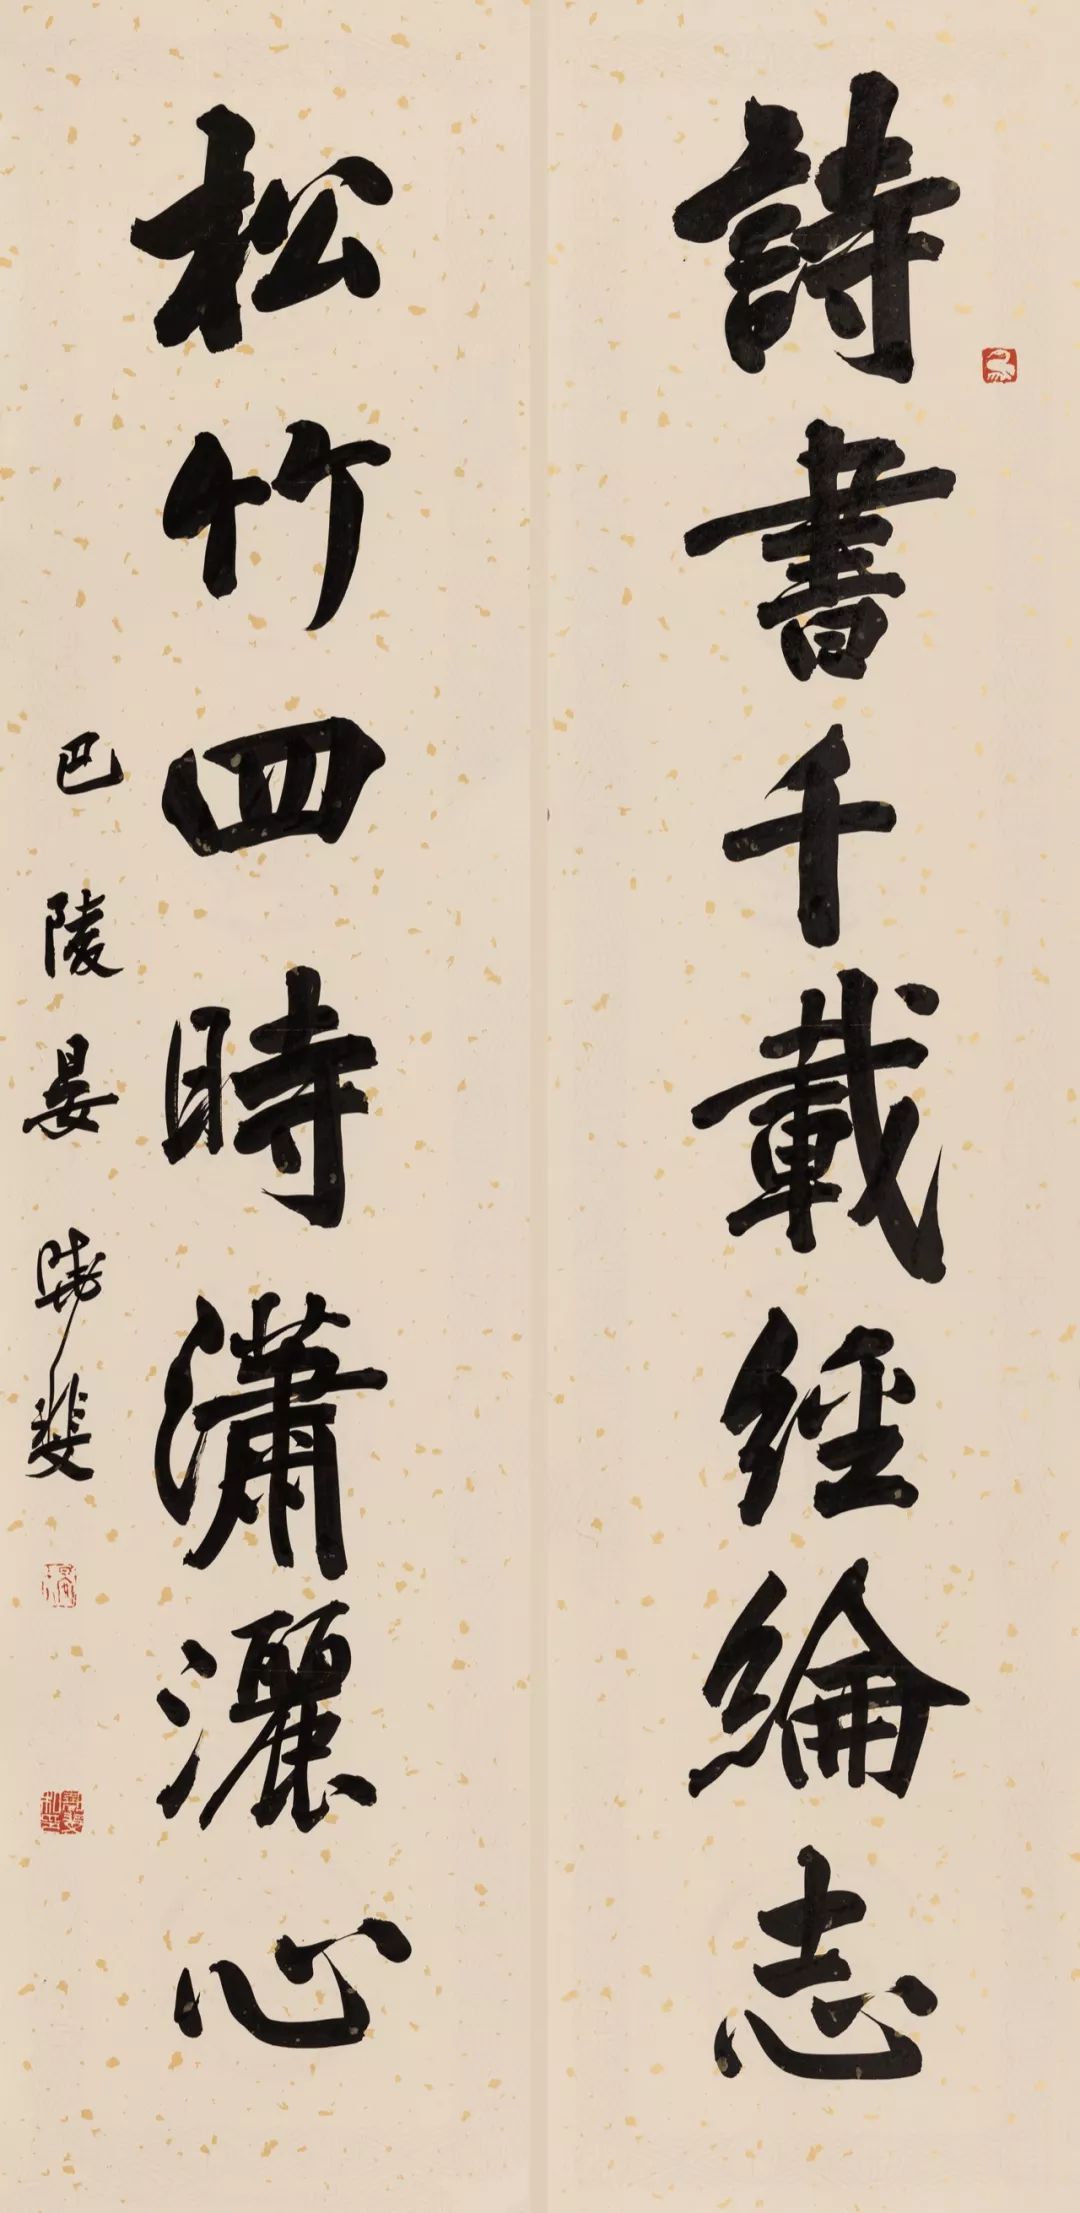 詩書千載經綸志
松竹四時瀟灑心
巴陵晏曉斐